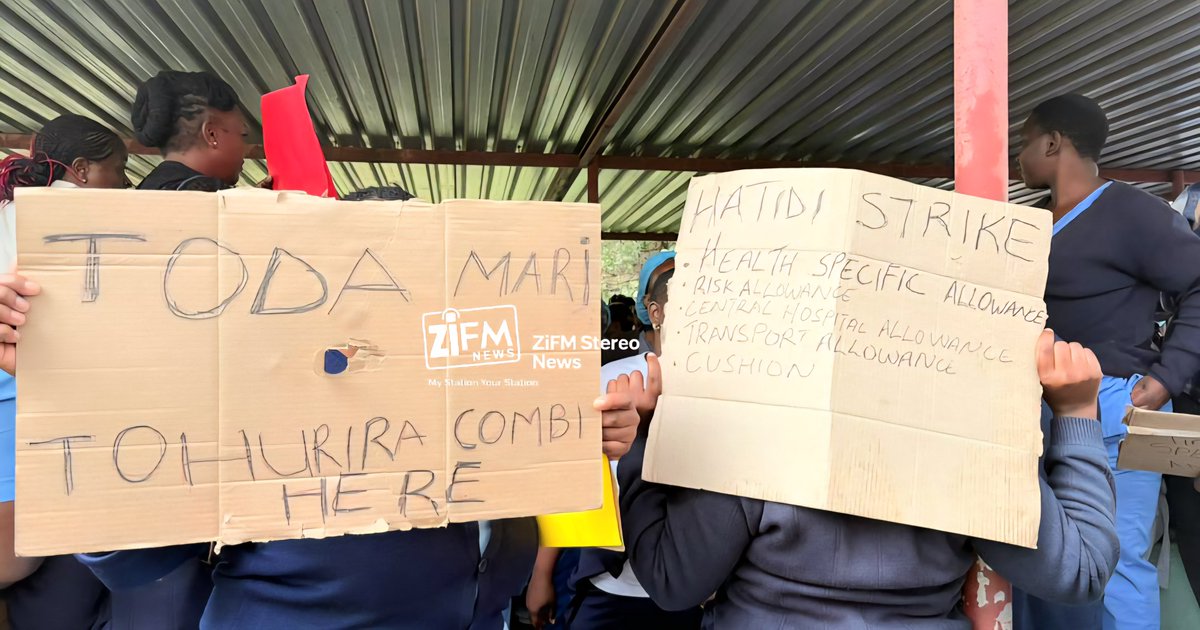 TODA MARI
TOHURIRA COMBI
HERE
HATIDI STRIKE
• HEALTH SPECIFIC ALLOWANCE
• RISK ALLOWANCE
• CENTRAL HOSPITAL ALLOWANCE
• TRANSPORT ALLOWANCE
• CUSHION
ZiFM
NEWS
ZiFM Stereo
News
My Station Your Station